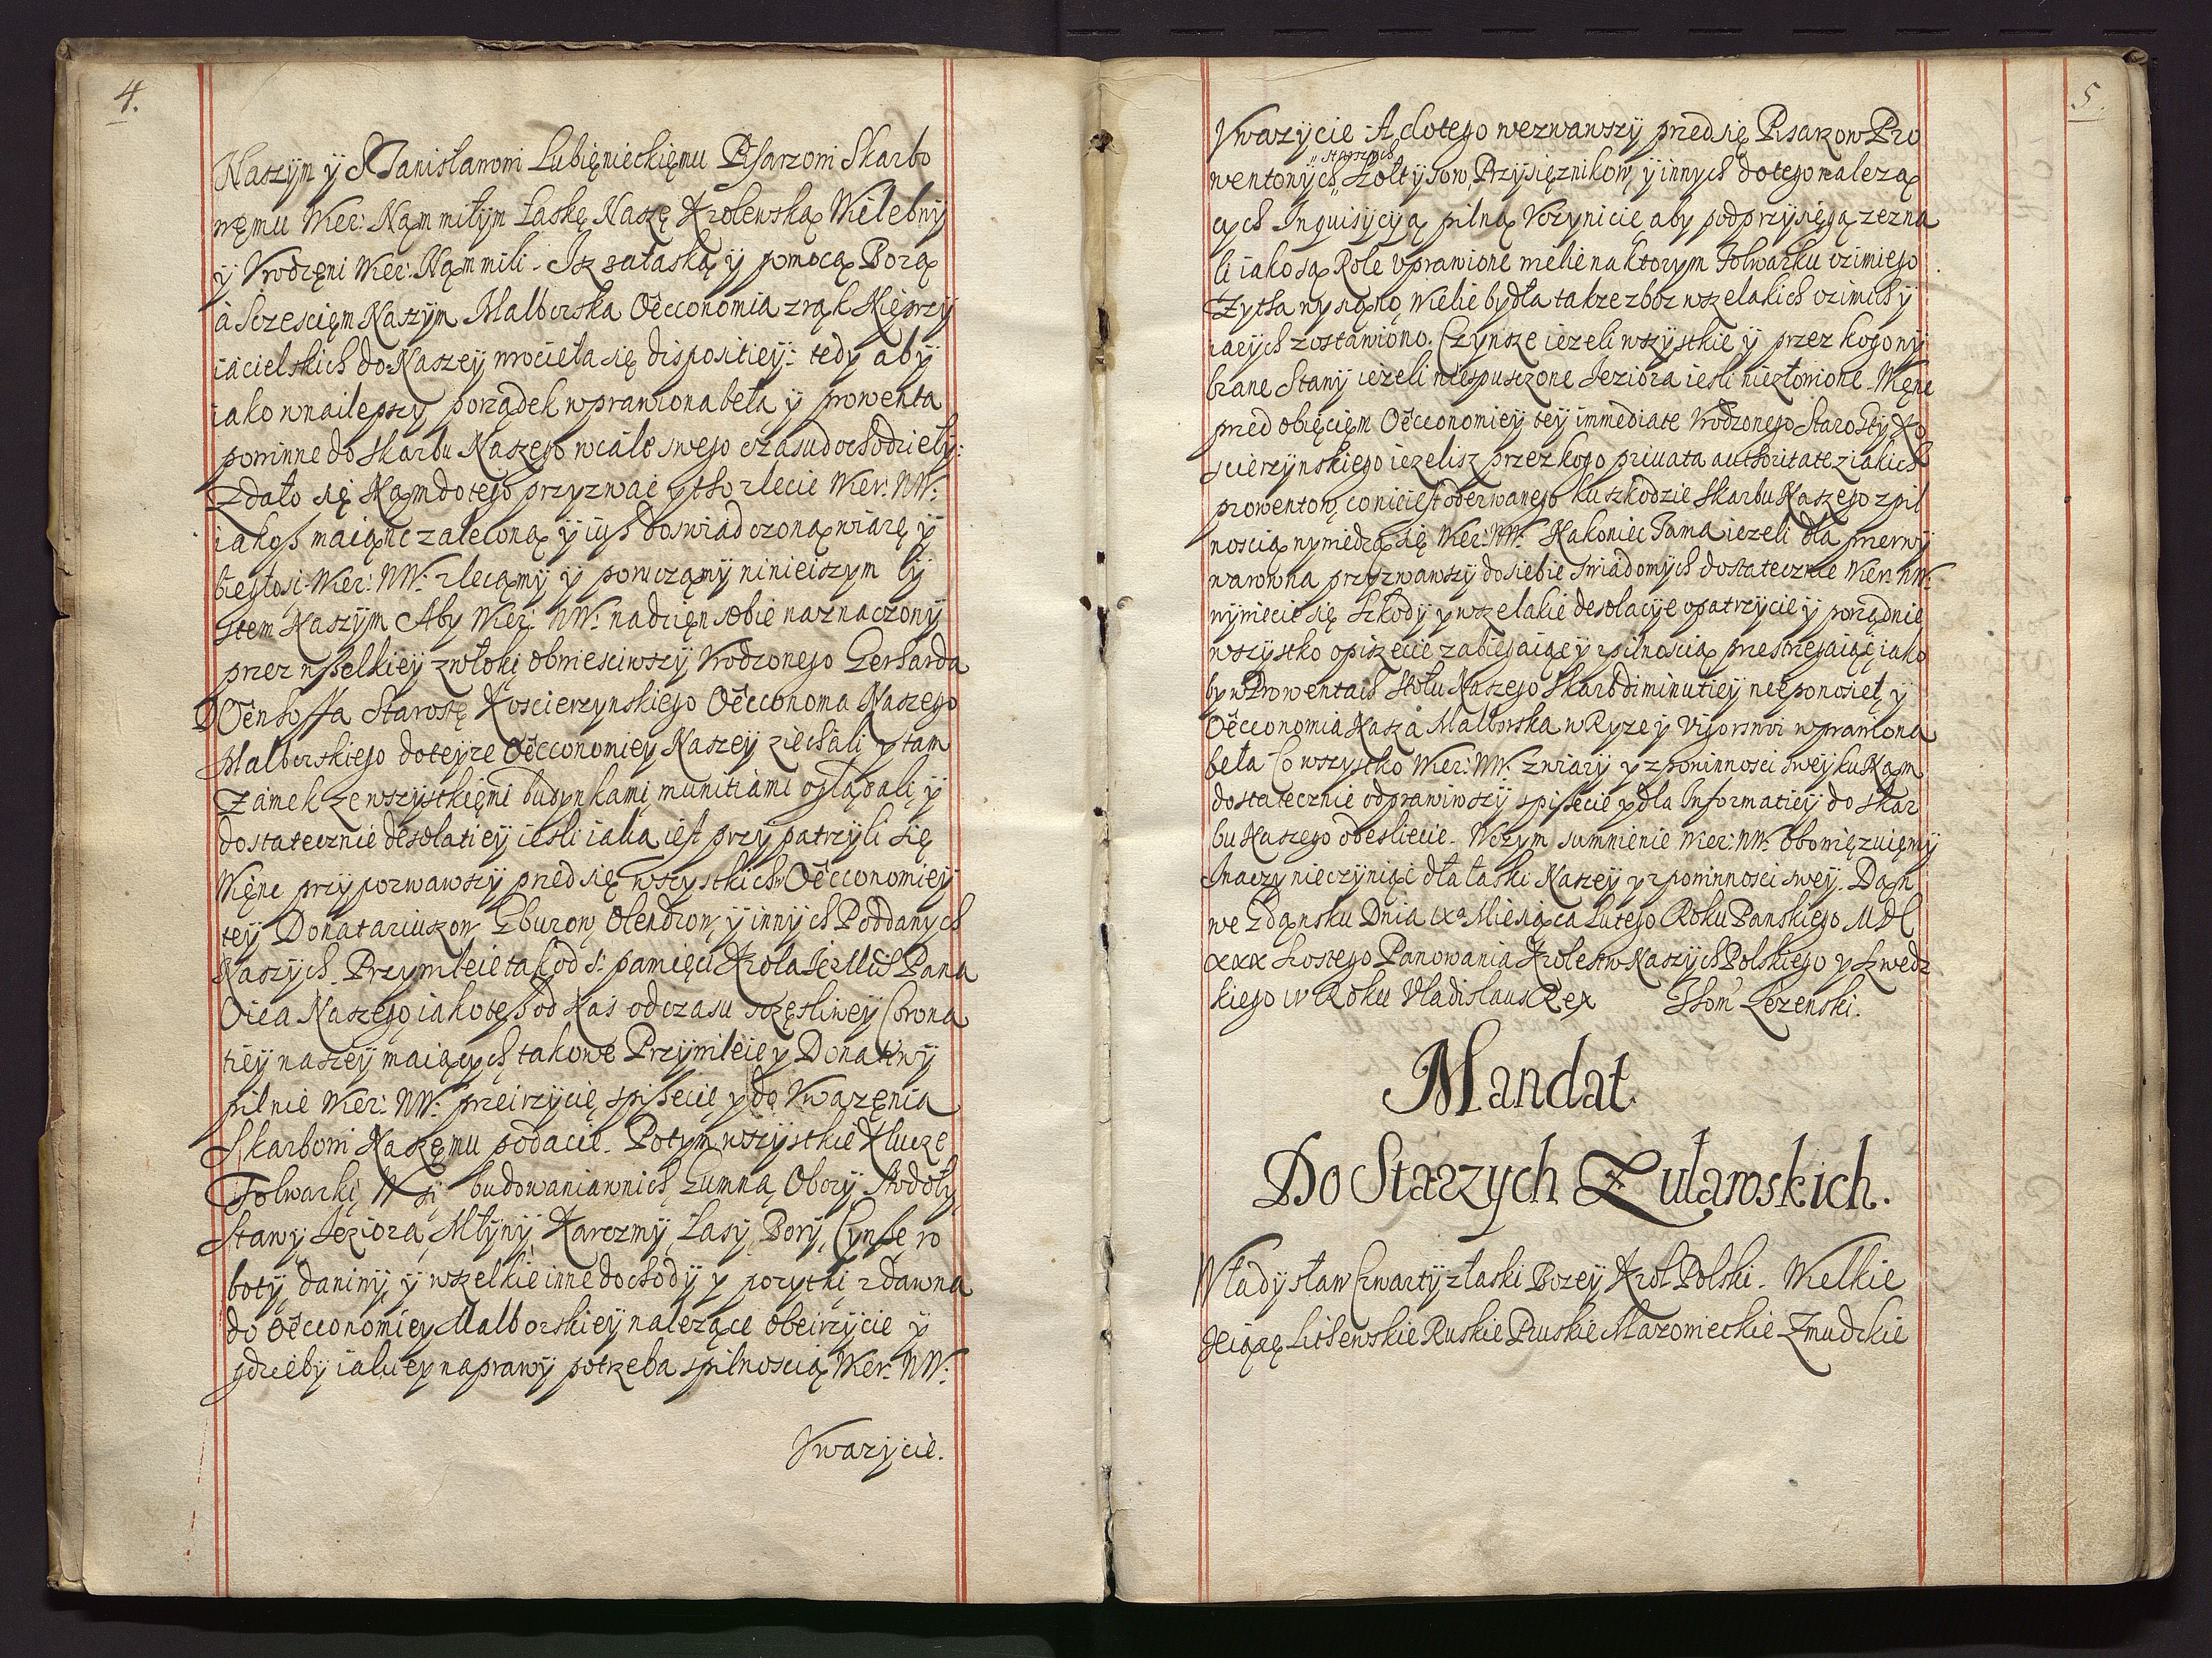 4.
Naszym y Stanisławowi Lubięnieckięmu Pisarzowi Skarbo
węmu Wier: Nąm miłym Łaskę Naszę Krolewską Wielebny
y Vrodzęni Wier: Nąm mili. Isz załaską y pomocą Bożą
à Sczescięm Naszym Malborska Oëcconomia z rąk Nieprzy
iacielskich do Naszey wrocieła się dispositiey: tedy aby
iako wnailepszy porządek wprawiona beła y prowenta
powinne do skarbu Naszego wcale swego czasu dochodzieły:
Zdało się Nąm do tego przyzwac y tho zlecic Wier: NW:
iakosz maiąnc zaleconą y iusz doswiadczoną wiarę y
biegłosc Wier: NW: zlecąmy y porucząmy ninieiszym ly
stem Naszym Aby Wier: NW: na dzięn sobie naznaczony
przez wszelkiey zwłoki obwiesciwszy Vrodzonego Gerharda
Dënhoffa Starostę Koscierzynskiego Oëcconoma Naszego
Malborskiego do teyze Oëcconomiey Naszey ziechali y tam
Zamek ze wszystkięmi budynkami munitiami oglądali y
dostatecznie desolatiey iesli iaka iest przypatrzyli się
Więnc przypozwawszy przed się wszystkich w Oëcconomiey
tey Donatariuszow Gburow, Olendrow, y innych Poddanych
Naszych. Przywileie tak od s: pamięci Krola Ie Mci Pana
Oica Naszego iako tesz od Nas od czasu sczęsliwey Corona
tiey naszey maiących takowe Przywileie y Donatiwy
pilnie Wier: NW: przeirzycie, spiszecie y do Vwazęnia
Skarbowi Naszęmu podacie. Potym wszystkie Klucze
Folwarki, Wsi, budowania w nich, Gumna, Obory Stodoły,
Stawy Ieziora, Młyny, Karczmy, Lasy, Bory, Cynsze, ro
boty, daniny, y wszelkie inne dochody y pozytki z dawna
do Oëcconomiey Malborskiey nalezące obeirzycie y
gdzieby iakiey naprawy potrzeba s pilnoscią Wier: NW:
Vwazycie.
5.
Vwazycie. A do tego wezwawszy przed się Pisarzow Pro
„starszych
wentowych „Szołtysow, Przysięznikow, y innych do tego nalezą
cych Inquisycyą pilną Vczynicie aby pod przysięgą zezna
li iako są Role vprawione wiele na ktorym Folwarku ozimiego
Zytha wysiąno, wiele bydła takze zboz wszelakich ozimich y
iarych zostawiono. Czynsze iezeli wszystkie y przez kogo wy
brane Stawy iezeli niespusczone Ieziora iesli niezłowione. Więnc
przed obięcięm Oëcconomiey tey immediate Vrodzonego Starosty Ko
scierzynskiego iezelisz przez kogo priuata authoritate z iakich
prowentow, co nie iest oderwanego ku szkodzie Skarbu Naszego z pil
noscią wywiedzą się Wier: NW: Nakoniec Tama iezeli dla pewny
warowna przyzwawszy do siebie swiadomych dostatecznie Wier: NW:
wywiecie się Szkody y wszelakie desolacye opatrzycie y porządnie
wszystko opiszecie zabiegaiąc y z pilnoscią przestrzegaiąc iako
by w Prowentach stołu Naszego Skarb diminutiey nie ponosieł, y
Oëcconomia Nasza Malborska w Ryze y Vigorswoi wprawiona
beła Co wszystko Wier: NW: z wiary y z powinnosci swey ku Nąm
dostatecznie odprawiwszy spiszecie y dla Informatiey do Skar
bu Naszego odesliecie. W czym sumnienie Wier: NW: obowięzuięmy
Inaczy nieczyniąc dla łaski Naszey y z powinnosci swey. Dąn
we Gdąnsku Dnia ix° Miesiąca Lutego Roku Panskiego MDC
xxx Szostego Panowania Krolestw Naszych Polskiego y Szwedz
kiego iv Roku Vladislaus Rex Thom Lezenski.
Mandat
Do Starzych Zuławskich.
Władysław Czwarty z łaski Bozey Krol Polski. Wielkie
Xciąze Lithewskie Ruskie Pruskie Mazowieckie Zmudzkie